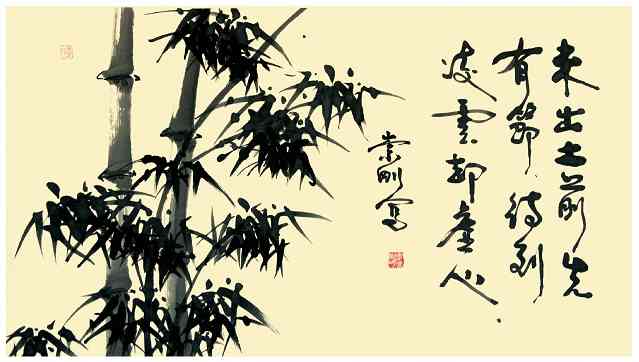 未出土前先
有節待到
凌雲虛心
崇剛寫